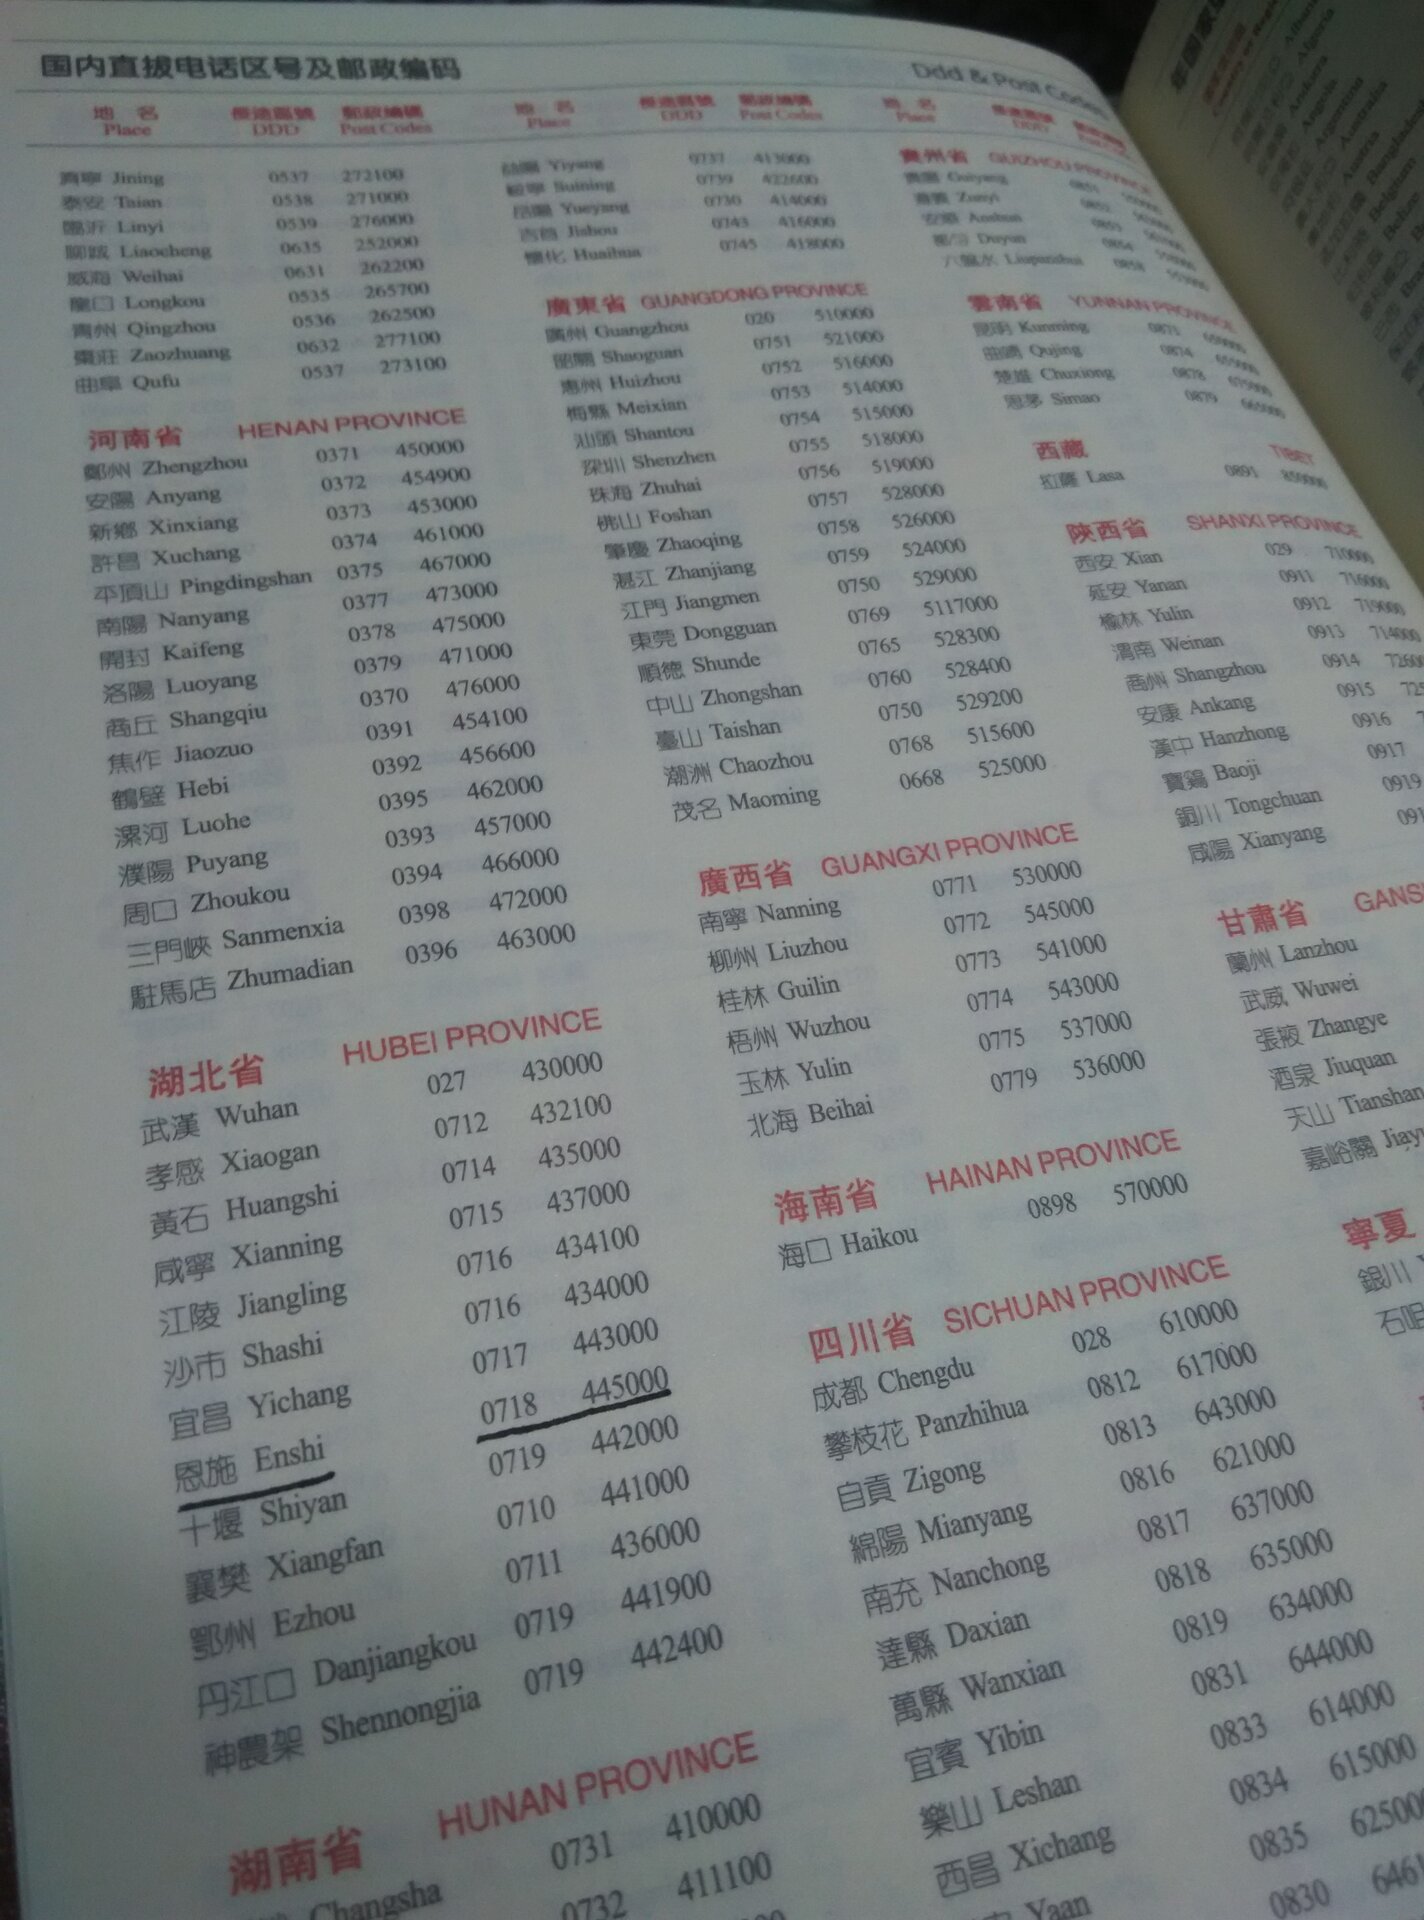 国内直拔电话区号及邮政编码
Ddd & Post Codes
地 名 長途區號 郵政編碼 地 名 長途區號 郵政編碼 地 名 長途區號
Place DDD Post Codes Place DDD Post Codes Place DDD
濟寧 Jining 0537 272100
泰安 Taian 0538 271000
臨沂 Linyi 0539 276000
聊城 Liaocheng 0635 252000
威海 Weihai 0631 262200
龍口 Longkou 0535 265700
青州 Qingzhou 0536 262500
棗莊 Zaozhuang 0632 277100
曲阜 Qufu 0537 273100
河南省 HENAN PROVINCE
鄭州 Zhengzhou 0371 450000
安陽 Anyang 0372 454900
新鄉 Xinxiang 0373 453000
許昌 Xuchang 0374 461000
平頂山 Pingdingshan 0375 467000
南陽 Nanyang 0377 473000
開封 Kaifeng 0378 475000
洛陽 Luoyang 0379 471000
商丘 Shangqiu 0370 476000
焦作 Jiaozuo 0391 454100
鶴壁 Hebi 0392 456600
漯河 Luohe 0395 462000
濮陽 Puyang 0393 457000
周口 Zhoukou 0394 466000
三門峽 Sanmenxia 0398 472000
駐馬店 Zhumadian 0396 463000
湖北省 HUBEI PROVINCE
武漢 Wuhan 027 430000
孝感 Xiaogan 0712 432100
黃石 Huangshi 0714 435000
咸寧 Xianning 0715 437000
江陵 Jiangling 0716 434100
沙市 Shashi 0716 434000
宜昌 Yichang 0717 443000
恩施 Enshi 0718 445000
十堰 Shiyan 0719 442000
襄樊 Xiangfan 0710 441000
鄂州 Ezhou 0711 436000
丹江口 Danjiangkou 0719 441900
神農架 Shennongjia 0719 442400
湖南省 HUNAN PROVINCE
Changsha 0731 410000
0732 411100
益陽 Yiyang 0737 413000
Suining 0739 422600
岳陽 Yueyang 0730 414000
吉首 Jishou 0743 416000
懷化 Huaihua 0745 418000
廣東省 GUANGDONG PROVINCE
廣州 Guangzhou 020 510000
韶關 Shaoguan 0751 521000
惠州 Huizhou 0752 516000
梅縣 Meixian 0753 514000
汕頭 Shantou 0754 515000
深圳 Shenzhen 0755 518000
珠海 Zhuhai 0756 519000
佛山 Foshan 0757 528000
肇慶 Zhaoqing 0758 526000
湛江 Zhanjiang 0759 524000
江門 Jiangmen 0750 529000
東莞 Dongguan 0769 5117000
順德 Shunde 0765 528300
中山 Zhongshan 0760 528400
臺山 Taishan 0750 529200
潮洲 Chaozhou 0768 515600
茂名 Maoming 0668 525000
廣西省 GUANGXI PROVINCE
南寧 Nanning 0771 530000
柳州 Liuzhou 0772 545000
桂林 Guilin 0773 541000
梧州 Wuzhou 0774 543000
玉林 Yulin 0775 537000
北海 Beihai 0779 536000
海南省 HAINAN PROVINCE
海口 Haikou 0898 570000
四川省 SICHUAN PROVINCE
成都 Chengdu 028 610000
攀枝花 Panzhihua 0812 617000
自貢 Zigong 0813 643000
綿陽 Mianyang 0816 621000
南充 Nanchong 0817 637000
達縣 Daxian 0818 635000
萬縣 Wanxian 0819 634000
宜賓 Yibin 0831 644000
樂山 Leshan 0833 614000
西昌 Xichang 0834 615000
Yaan 0835 625000
0830 6461
貴州省 GUIZHOU PROVINCE
貴陽 Guiyang 0851
遵義 Zunyi 0852
安順 Anshun 0853
都勻 Duyun 0854
六盤水 Liupanshui 0858
雲南省 YUNNAN PROVINCE
昆明 Kunming 0871 650000
曲靖 Qujing 0874 655000
楚雄 Chuxiong 0878 675000
思茅 Simao 0879 665000
西藏 TIBET
拉薩 Lasa 0891 850000
陝西省 SHANXI PROVINCE
西安 Xian 029 710000
延安 Yanan 0911 716000
榆林 Yulin 0912 719000
渭南 Weinan 0913 714000
商州 Shangzhou 0914 72600
安康 Ankang 0915 725
漢中 Hanzhong 0916 7
寶鷄 Baoji 0917
銅川 Tongchuan 0919
咸陽 Xianyang 091
甘肅省 GANS
蘭州 Lanzhou
武威 Wuwei
張掖 Zhangye
酒泉 Jiuquan
天山 Tianshan
嘉峪關 Jiayu
寧夏
銀川 Y
石咀
Albania
Algeria
Ankara
Angola
Argentina
Australia
Austria
Bangladesh
Belgium